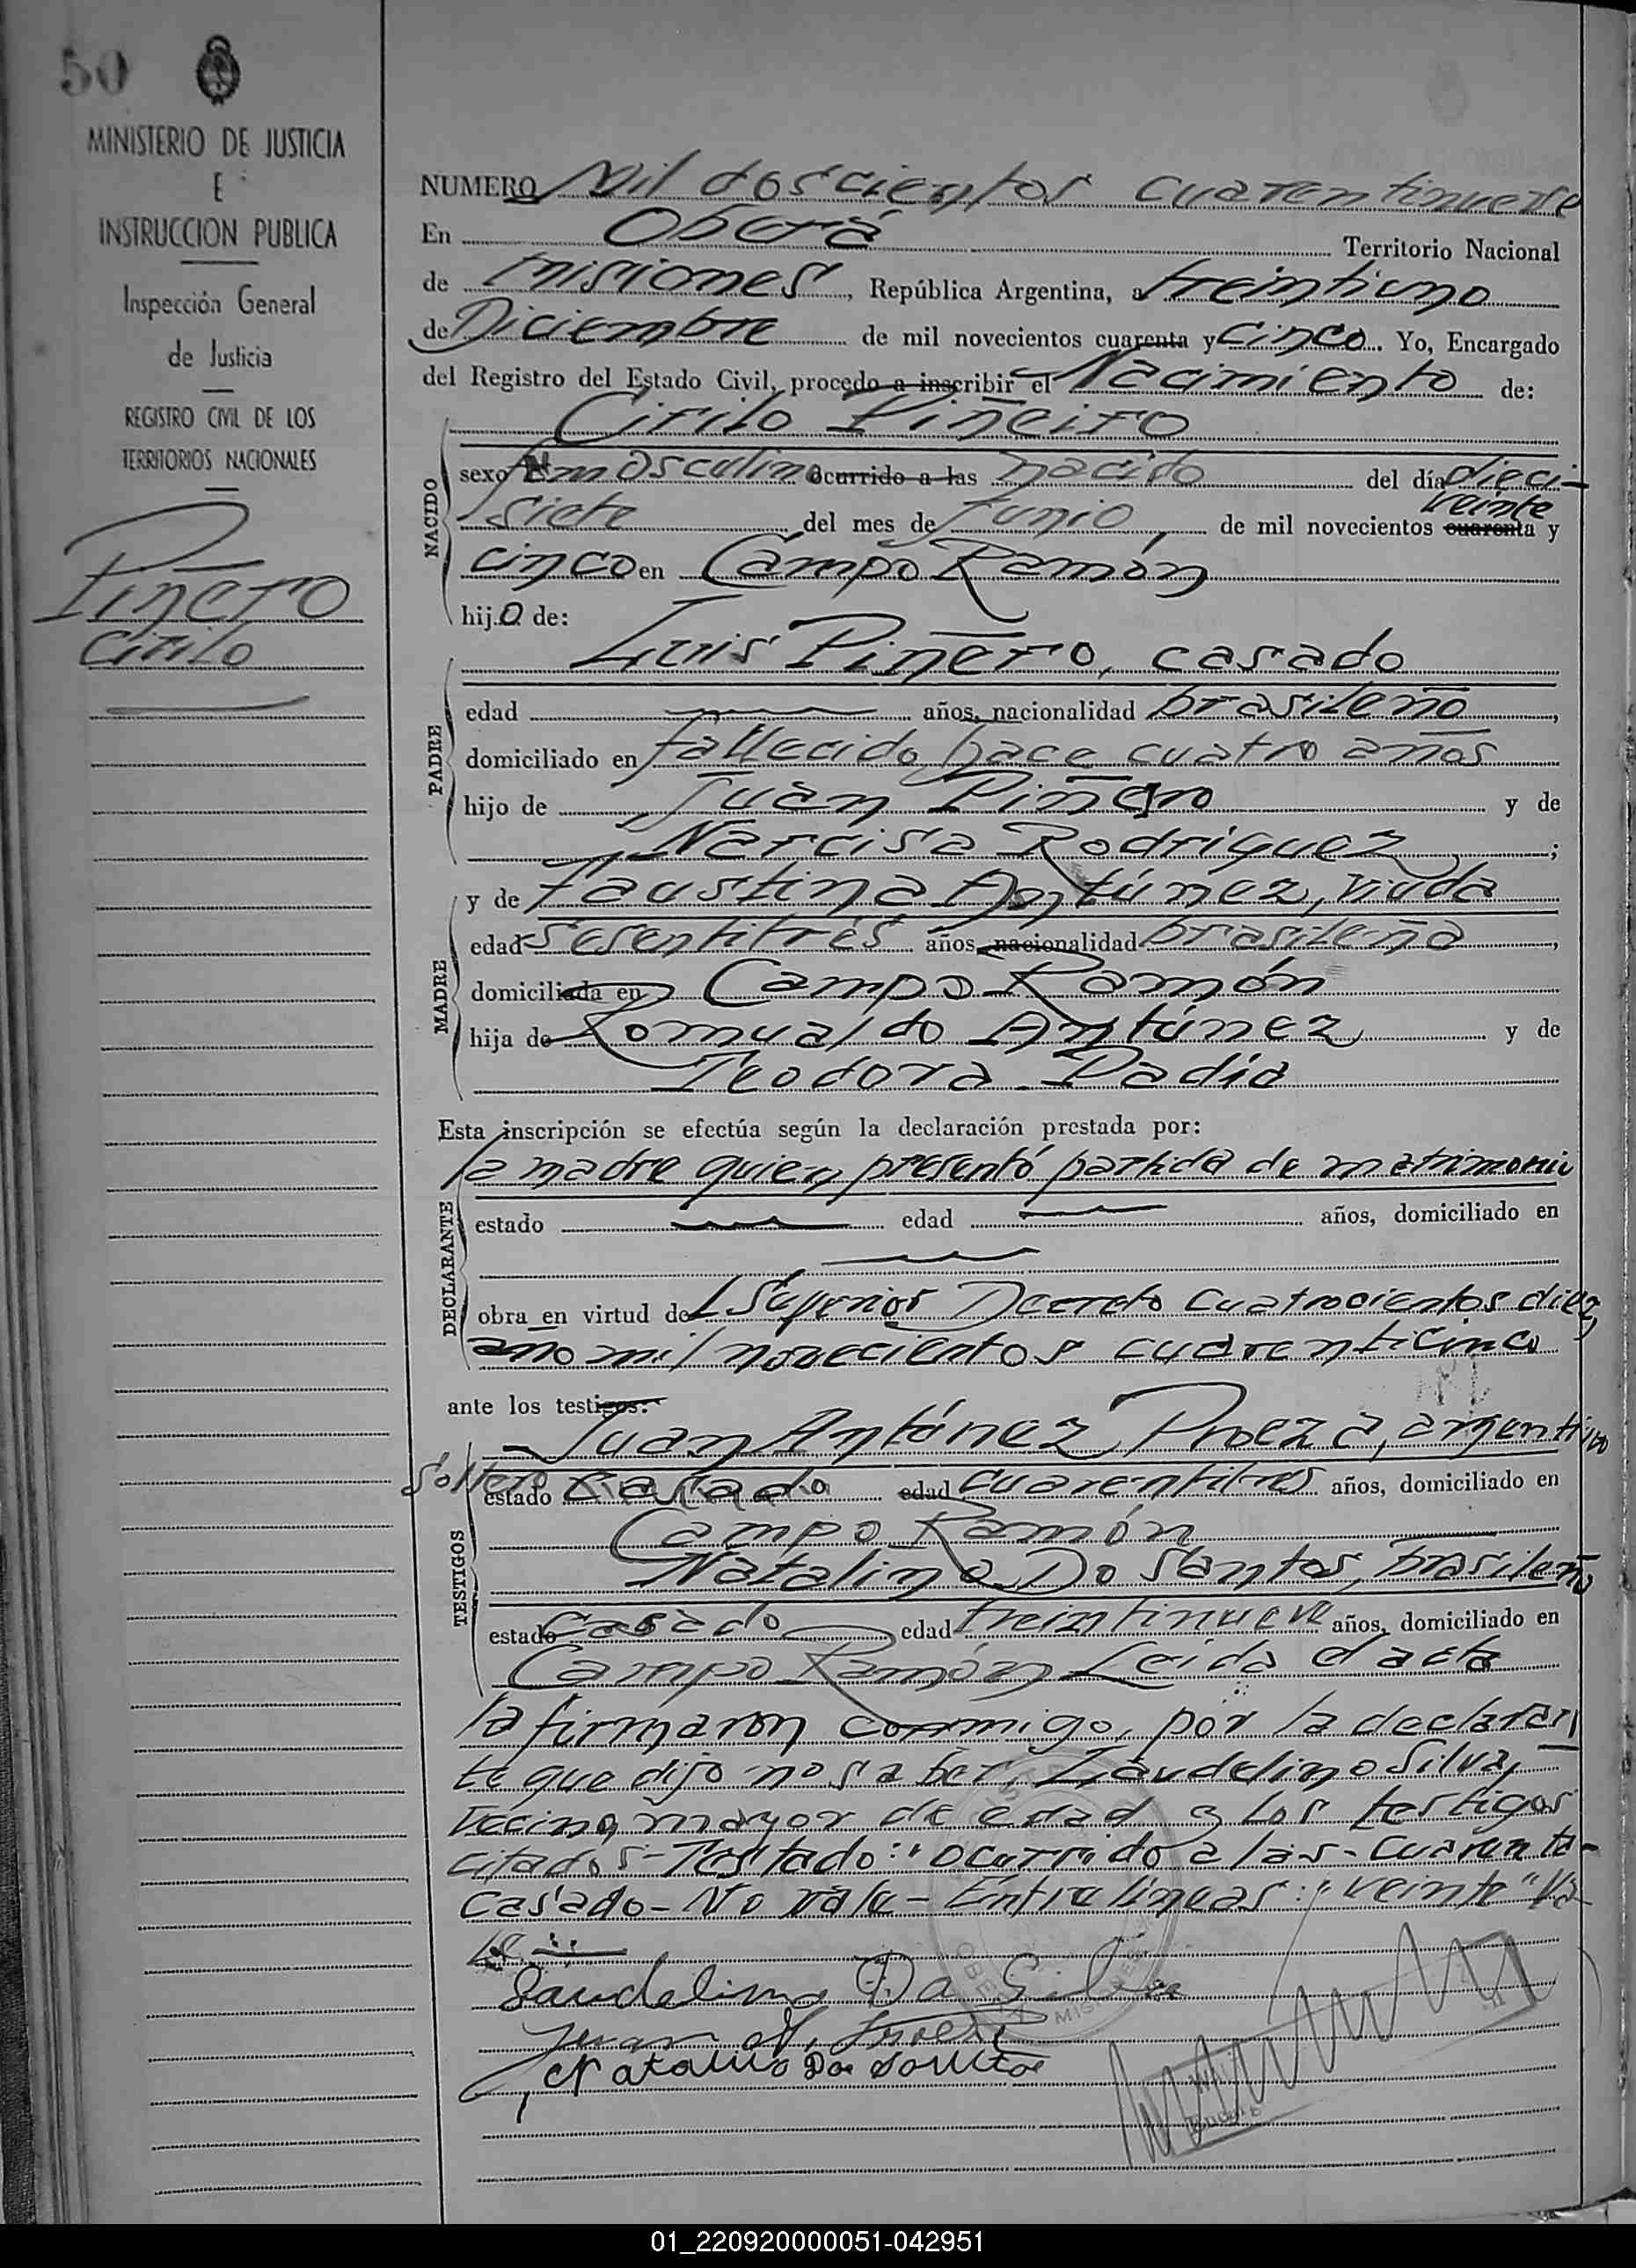 50
MINISTERIO DE JUSTICIA
E
INSTRUCCION PUBLICA
Inspección General
de Justicia
REGISTRO CIVIL DE LOS
TERRITORIOS NACIONALES
Piñero
Cirilo
NUMERO Mil doscientos cuarentinueve
En Oberá Territorio Nacional
de Misiones, República Argentina, a treintiuno
de Diciembre de mil novecientos cuarenta y cinco. Yo, Encargado
del Registro del Estado Civil, procedo a inscribir el Nacimiento de:
Cirilo Piñeiro
NACIDO
sexo masculino ocurrido a las nacido del día dieci-
siete del mes de Junio de mil novecientos cuarenta y
veinte
cinco en Campo Ramón
hijo de:
Luis Piñero, casado
PADRE
edad años, nacionalidad brasileño,
domiciliado en fallecido hace cuatro años
hijo de Juan Piñero y de
Narcisa Rodríguez;
MADRE
y de Faustina Antúnez, viuda
edad sesentitrés años, nacionalidad brasileña,
domiciliada en Campo Ramón
hija de Romualdo Antúnez y de
Teodora Padia
Esta inscripción se efectúa según la declaración prestada por:
la madre quien presentó partida de matrimonio
DECLARANTE
estado edad años, domiciliado en
obra en virtud del Superior Decreto cuatrocientos diez,
año mil novecientos cuarenticinco
ante los testigos:
Juan Antúnez Proeza, argentino
TESTIGOS
soltero estado casado edad cuarentitres años, domiciliado en
Campo Ramón
Natalino Do Santos, brasileño
estado casado edad treintinueve años, domiciliado en
Campo Ramón Leida el acta
la firmaron conmigo, por la declaran
te que dijo no saber, Laudelino Silva,
vecino, mayor de edad y los testigos
citados- Testado: "ocurrido a las- cuarenta-
casado- No vale- Entre líneas: "veinte" Va
le
Laudelino Da Silva
Juan A. Proeza
Natalino Dos Santos
01_220920000051-042951